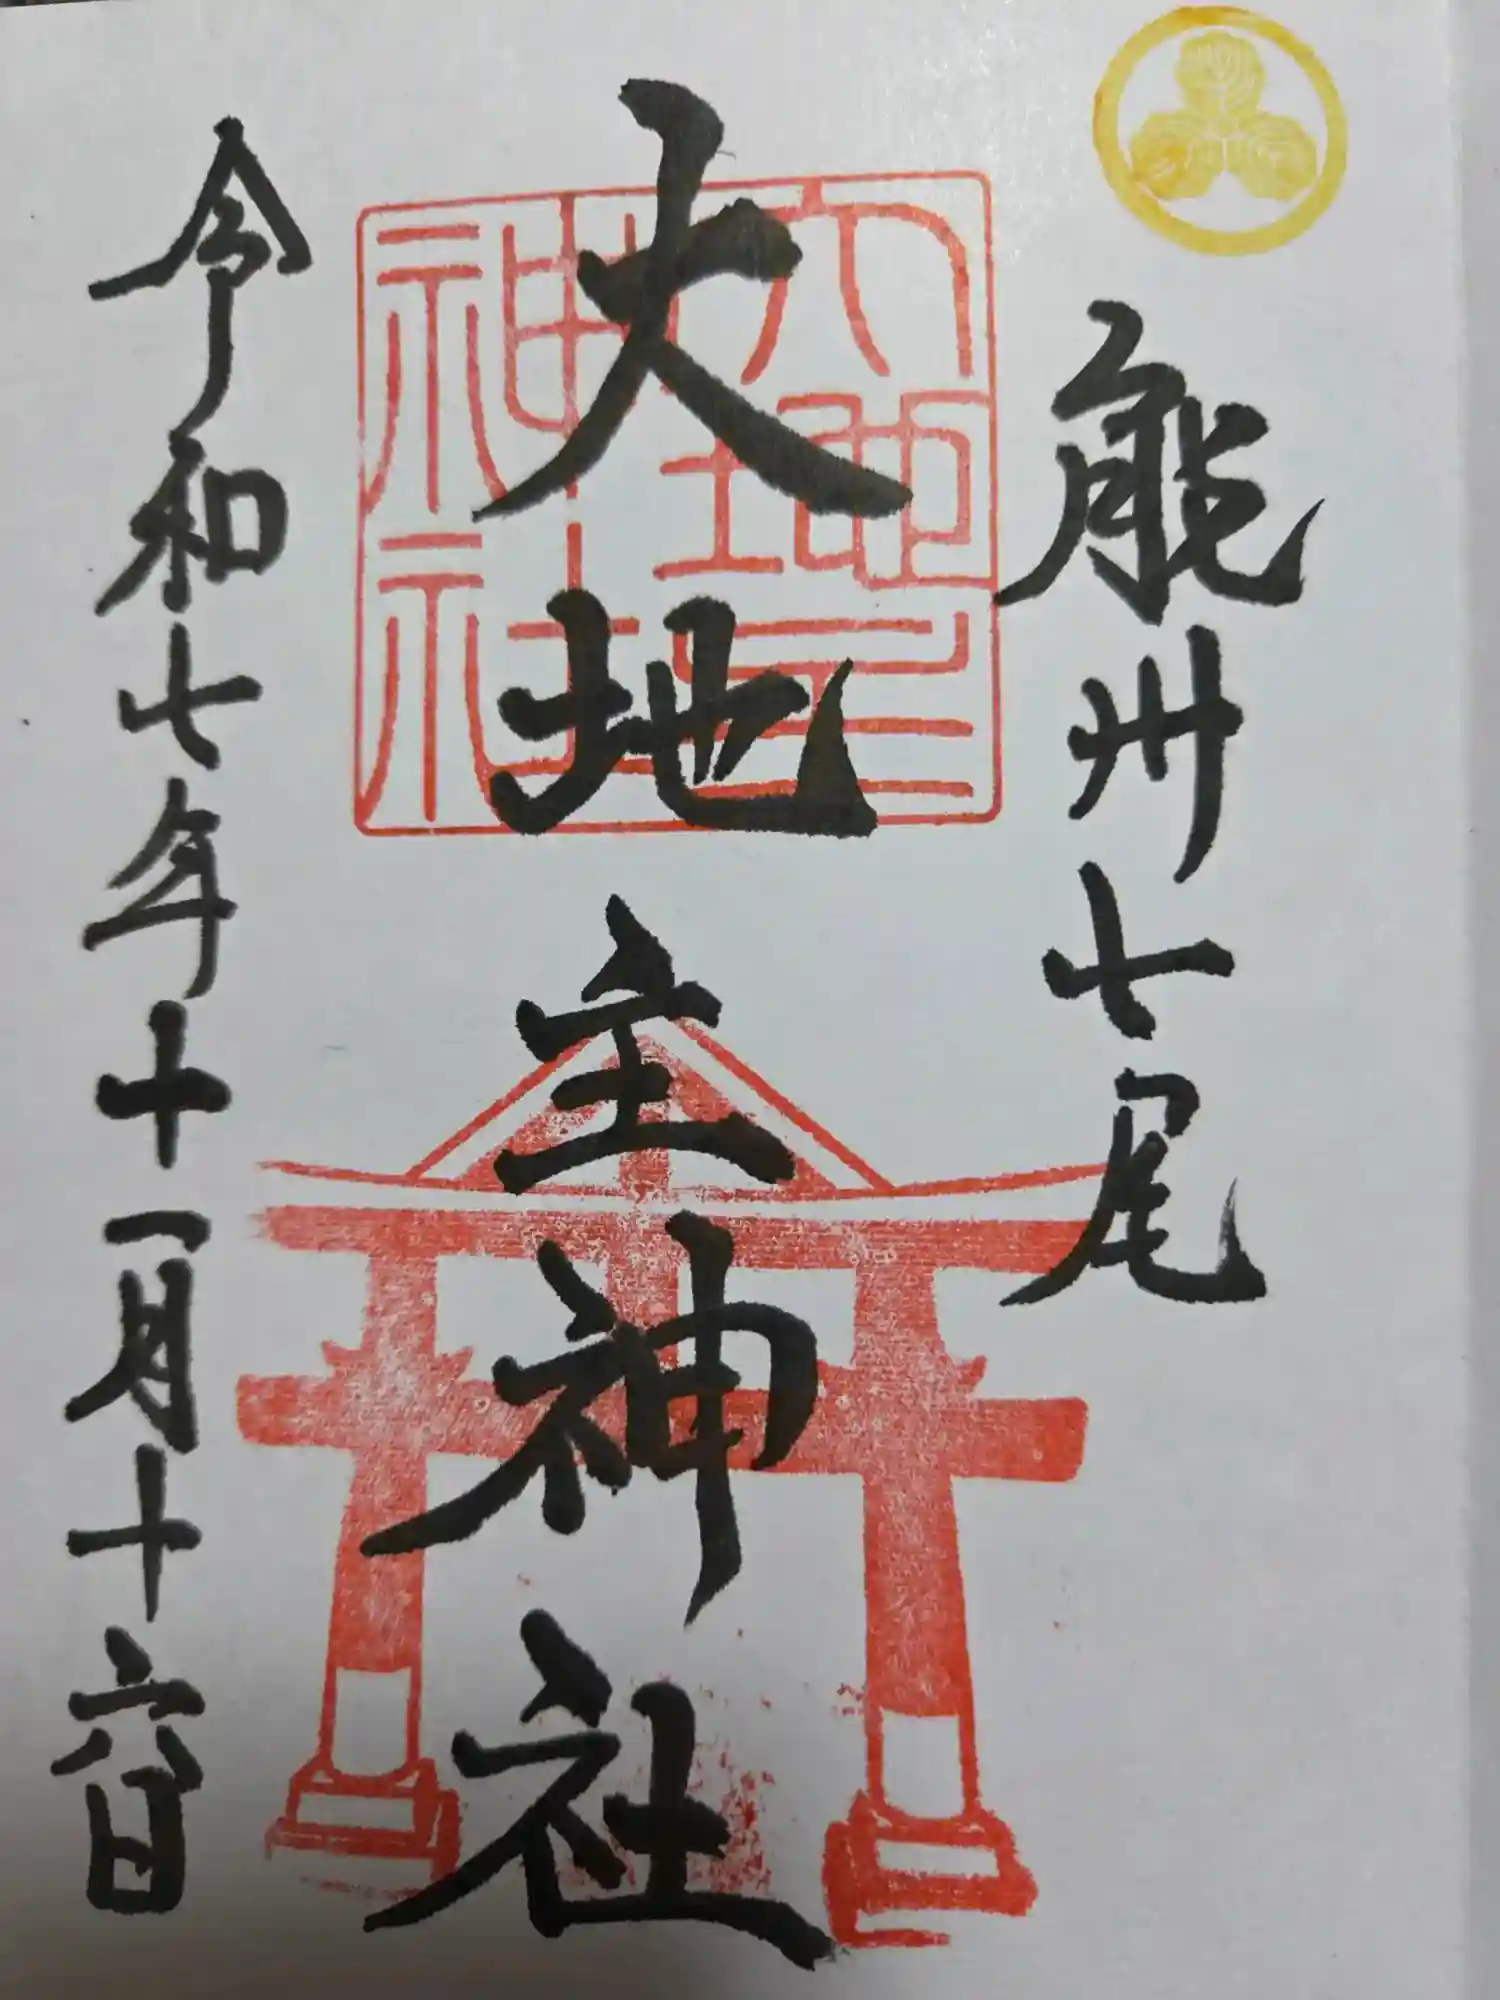 能州七尾
大地主神社
大地主神社
令和七年十一月十六日